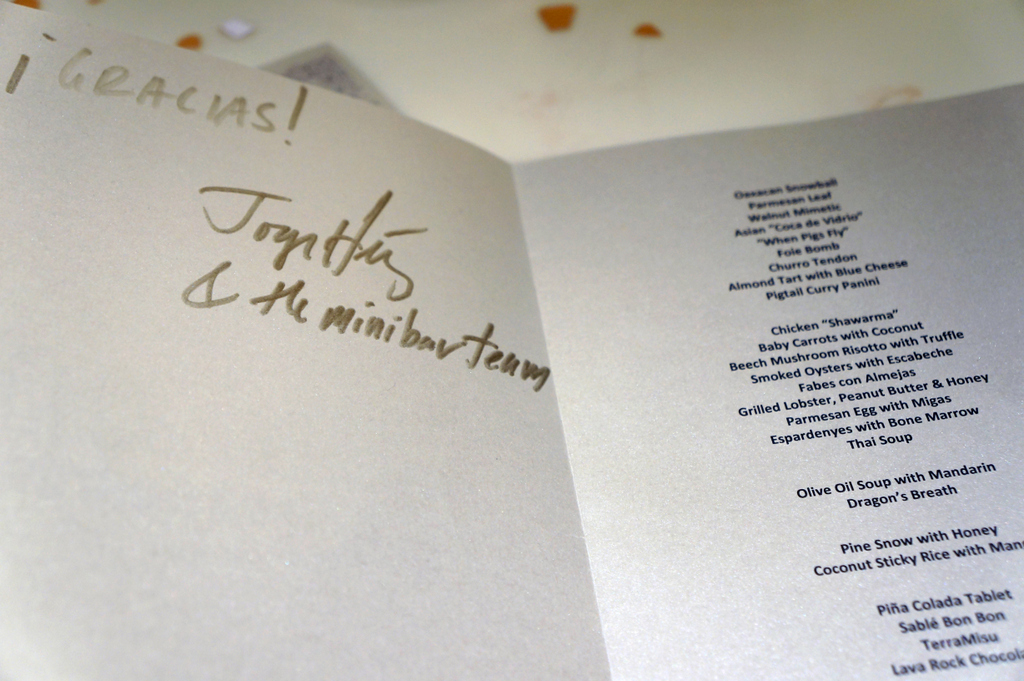 ¡GRACIAS!
& the minibar team
Oaxacan Snowball
Parmesan Leaf
Walnut Mimetic
Asian "Coca de Vidrio"
"When Pigs Fly"
Foie Bomb
Churro Tendon
Almond Tart with Blue Cheese
Pigtail Curry Panini
Chicken "Shawarma"
Baby Carrots with Coconut
Beech Mushroom Risotto with Truffle
Smoked Oysters with Escabeche
Fabes con Almejas
Grilled Lobster, Peanut Butter & Honey
Parmesan Egg with Migas
Espardenyes with Bone Marrow
Thai Soup
Olive Oil Soup with Mandarin
Dragon's Breath
Pine Snow with Honey
Coconut Sticky Rice with Man
Piña Colada Tablet
Sablé Bon Bon
TerraMisu
Lava Rock Chocola